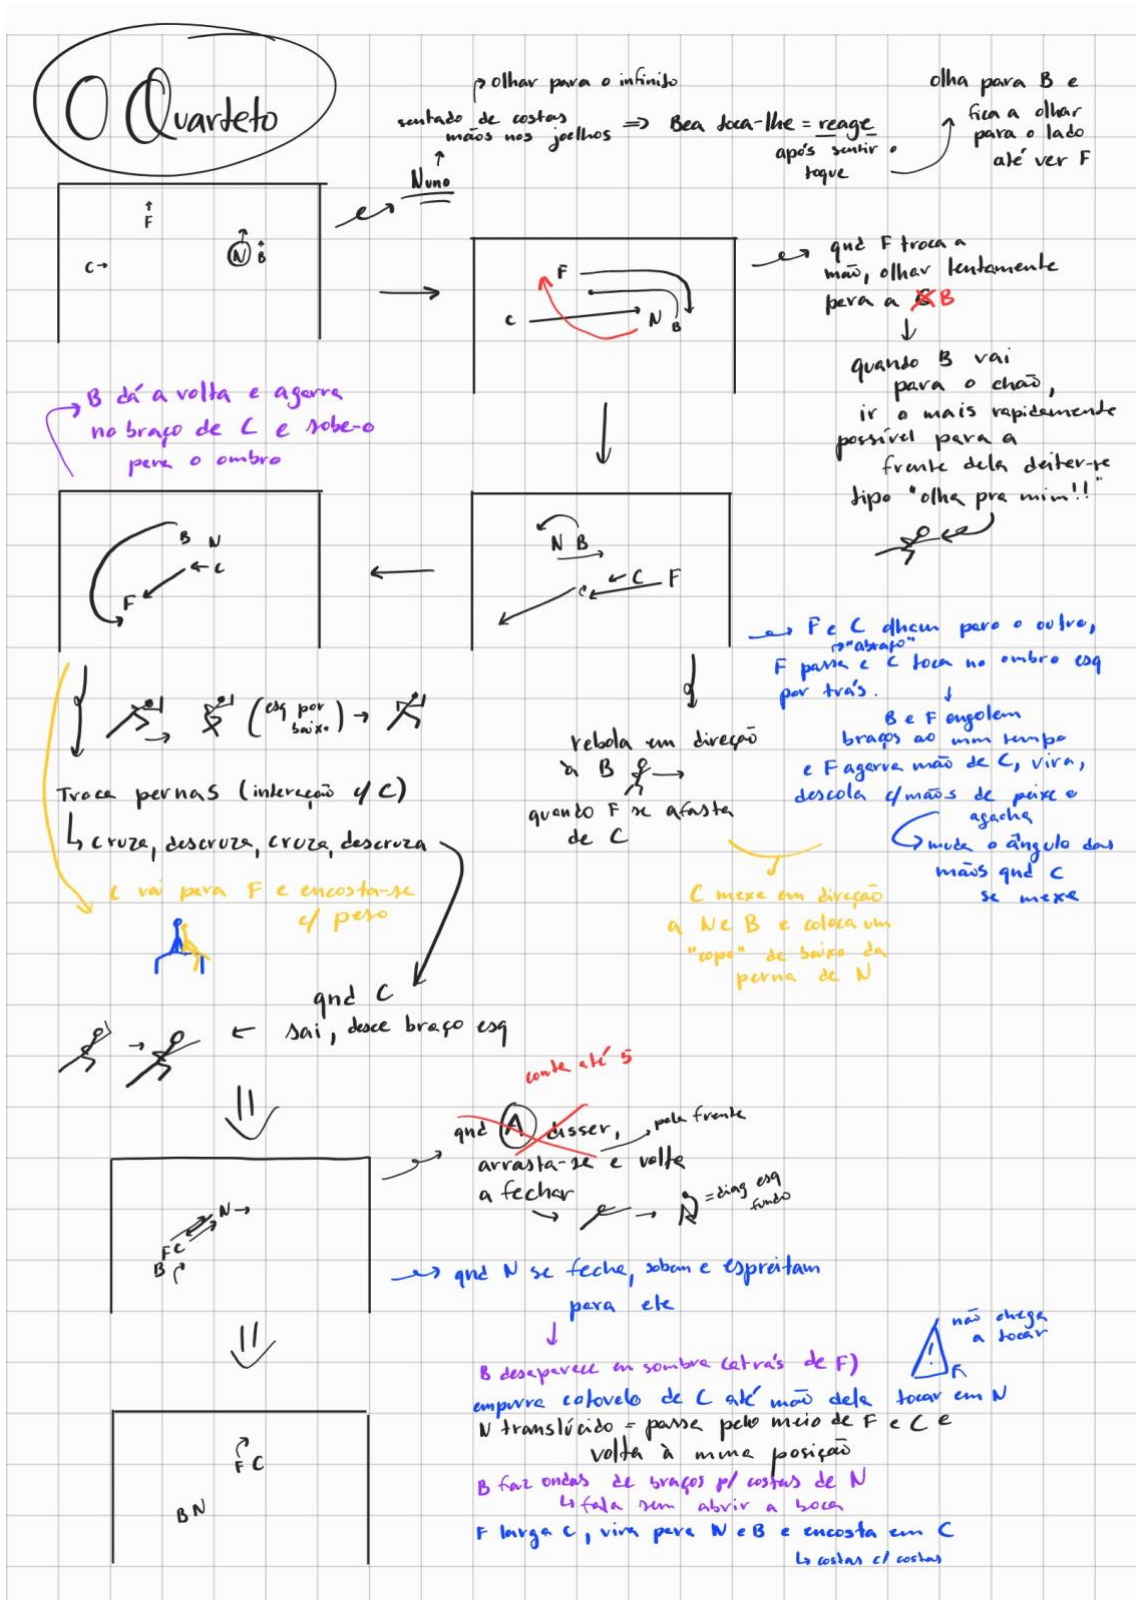 O Quarteto
↱ olhar para o infinito
sentado de costas
mãos nos joelhos ⇒ Bea toca-lhe = reage
após sentir o
toque
olha para B e
fica a olhar
para o lado
até ver F
Nuno
F
C → N B
F
C N B
qnd F troca a
mão, olhar lentamente
para a B
↓
quando B vai
para o chão,
ir o mais rapidamente
possível para a
frente dela deitar-se
tipo "olha pra mim!!"
B dá a volta e agarra
no braço de C e sobe-o
para o ombro
B N
← C
F
N B
C ← C F
F e C olham para o outro,
↳ "abraço"
F passa e C toca no ombro esq
por trás.
↓
B e F engolem
braços ao mm tempo
e F agarra mão de C, vira,
descola c/ mãos de peixe e
agacha
muda o ângulo das
mãos qnd C
se mexe
→ (esq por
baixo) →
Troca pernas (interação c/ C)
↳ cruza, descruza, cruza, descruza
rebola em direção
à B →
quando F se afasta
de C
C vai para F e encosta-se
c/ peso
C mexe em direção
a N e B e coloca um
"copo" de baixo da
perna de N
qnd C
← sai, desce braço esq
conta até 5
qnd A disser,
pela frente
arrasta-se e volta
a fechar
→ → = diag esq
fundo
N →
F C
B
qnd N se fecha, sobem e espreitam
para ele
↓
não chega
a tocar
!
B desaparece em sombra (atrás de F)
empurra cotovelo de C até mão dela tocar em N
N translúcido = passa pelo meio de F e C e
volta à mma posição
B faz ondas de braços p/ costas de N
↳ fala sem abrir a boca
F larga C, vira para N e B e encosta em C
↳ costas c/ costas
F C
B N